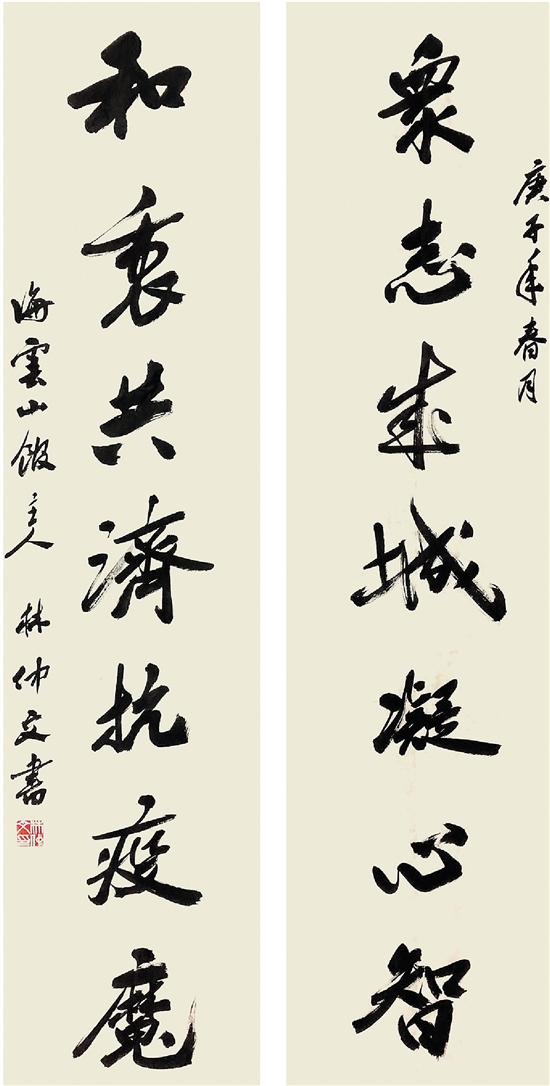 庚子年春月
眾志成城凝心智
和衷共濟抗疫魔
海雲山館主人 林仲文書